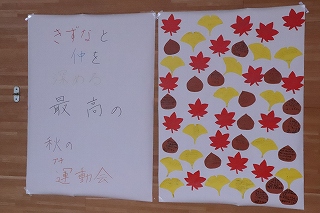 きずなと
仲を
深める
最高の
秋の
運動会